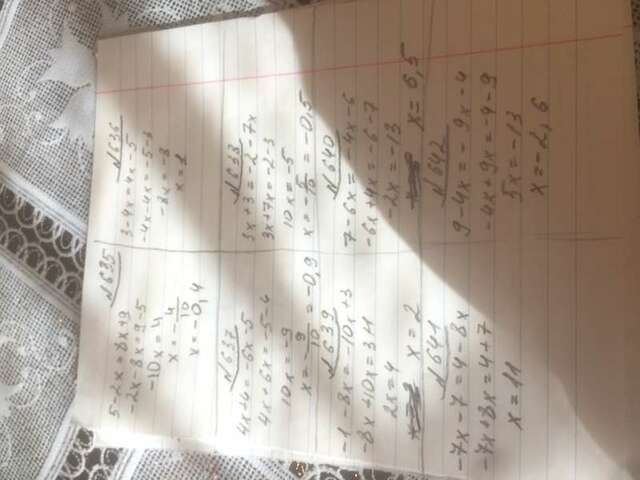 №635
5-2x=8x+9
-2x-8x=9-5
-10x=4
x=-4/10
x=-0,4
№636
3-4x=4x-5
-4x-4x=-5-3
-8x=-8
x=1
№637
4x+4=-6x-5
4x+6x=-5-4
10x=-9
x=-9/10=-0,9
№638
3x+3=-2-7x
3x+7x=-2-3
10x=-5
x=-5/10=-0,5
№639
-1-8x=-10x+3
-8x+10x=3+1
2x=4
x=2
№640
7-6x=-4x-6
-6x+4x=-6-7
-2x=-13
x=6,5
№641
-7x-7=4-8x
-7x+8x=4+7
x=11
№642
9-4x=-9x-4
-4x+9x=-4-9
5x=-13
x=-2,6